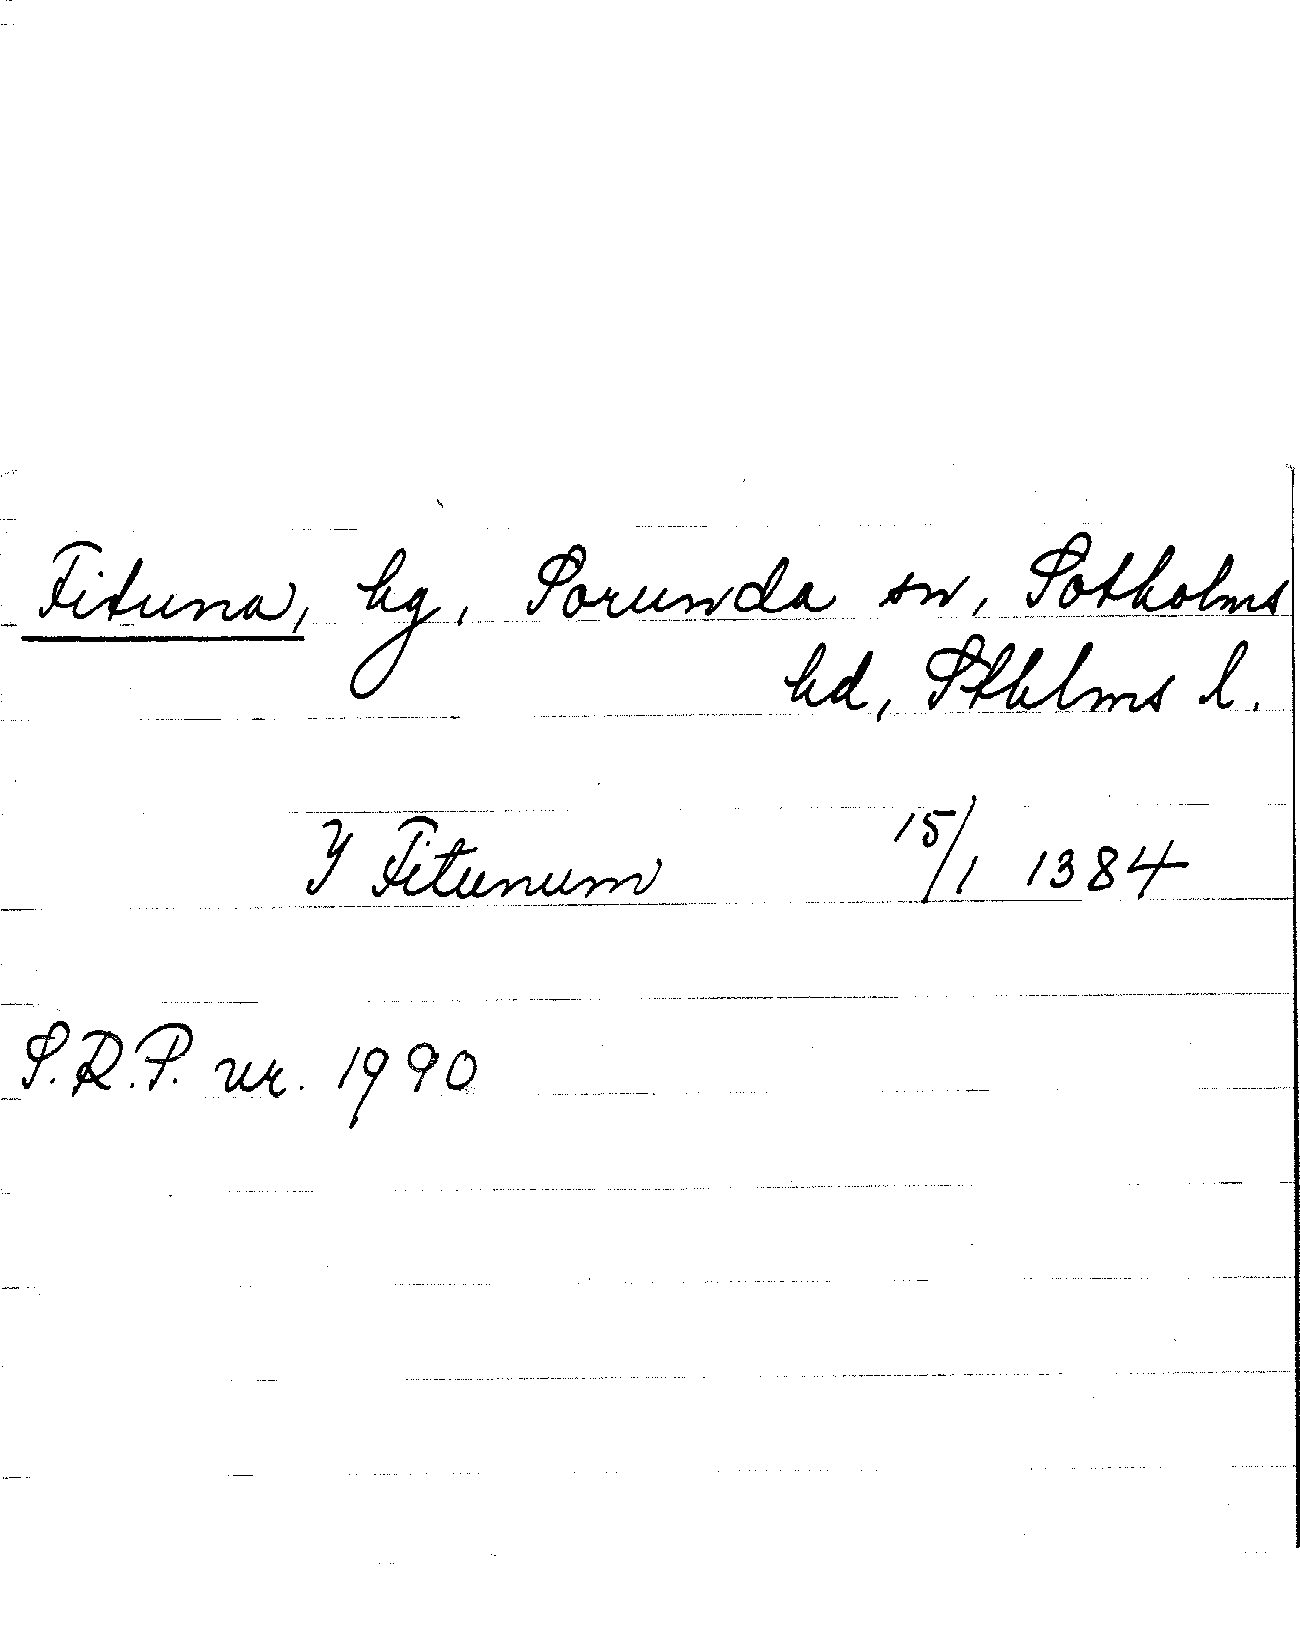 Fituna, hg, Sorunda sn, Sotholms
hd, Sthlms l.
J Fitunum 15/1 1384
S.R.P. nr. 1990